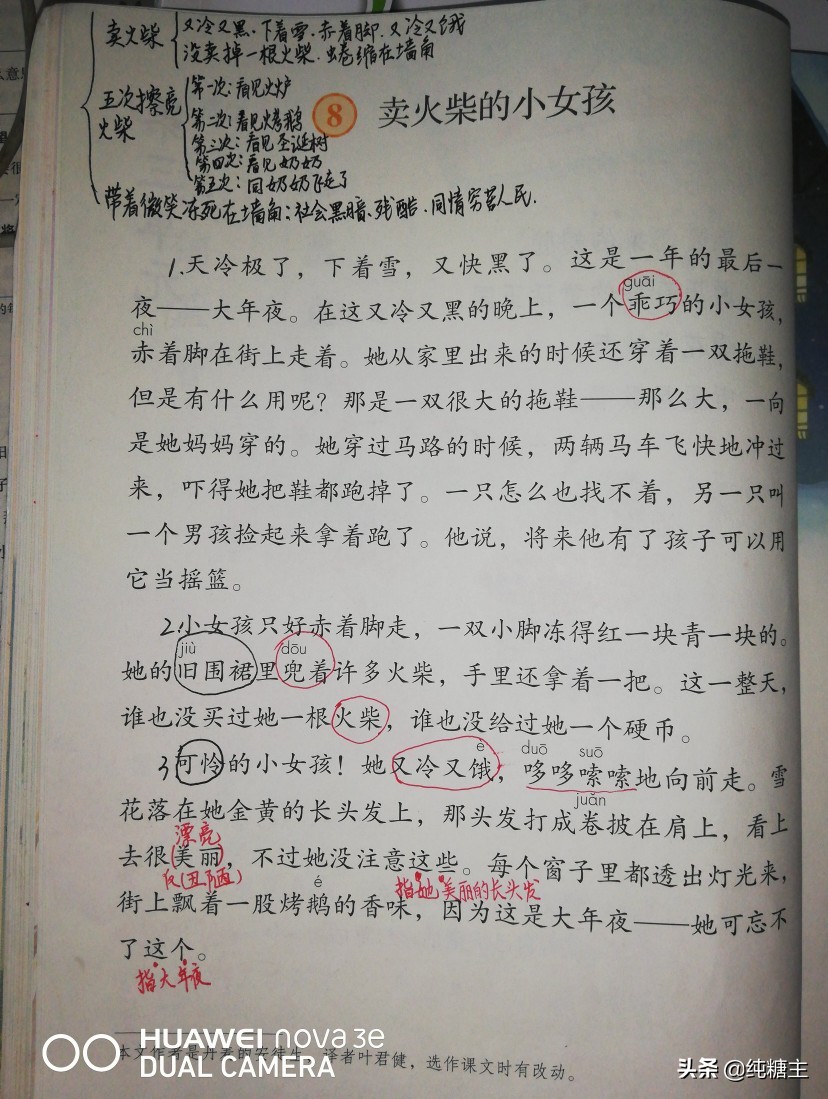 卖火柴 又冷又黑.下着雪.赤着脚.又冷又饿
没卖掉一根火柴.蜷缩在墙角
五次擦亮火柴
第一次:看见火炉
第二次:看见烤鹅
第三次:看见圣诞树
第四次:看见奶奶
第五次:同奶奶飞走了
带着微笑冻死在墙角:社会黑暗、残酷、同情穷苦人民.
8 卖火柴的小女孩
1.天冷极了，下着雪，又快黑了。这是一年的最后一
guāi
夜——大年夜。在这又冷又黑的晚上，一个乖巧的小女孩，
chì
赤着脚在街上走着。她从家里出来的时候还穿着一双拖鞋，
但是有什么用呢？那是一双很大的拖鞋——那么大，一向
是她妈妈穿的。她穿过马路的时候，两辆马车飞快地冲过
来，吓得她把鞋都跑掉了。一只怎么也找不着，另一只叫
一个男孩捡起来拿着跑了。他说，将来他有了孩子可以用
它当摇篮。
2.小女孩只好赤着脚走，一双小脚冻得红一块青一块的。
jiù dōu
她的旧围裙里兜着许多火柴，手里还拿着一把。这一整天，
谁也没买过她一根火柴，谁也没给过她一个硬币。
è duō suō
3可怜的小女孩！她又冷又饿，哆哆嗦嗦地向前走。雪
juǎn
花落在她金黄的长头发上，那头发打成卷披在肩上，看上
漂亮
去很(美丽)，不过她没注意这些。每个窗子里都透出灯光来，
反(丑陋) é 指她美丽的长头发
街上飘着一股烤鹅的香味，因为这是大年夜——她可忘不
了这个。
指大年夜
本文作者是丹麦的安徒生，译者叶君健，选作课文时有改动。
HUAWEI nova 3e
DUAL CAMERA
头条 @纯糖主